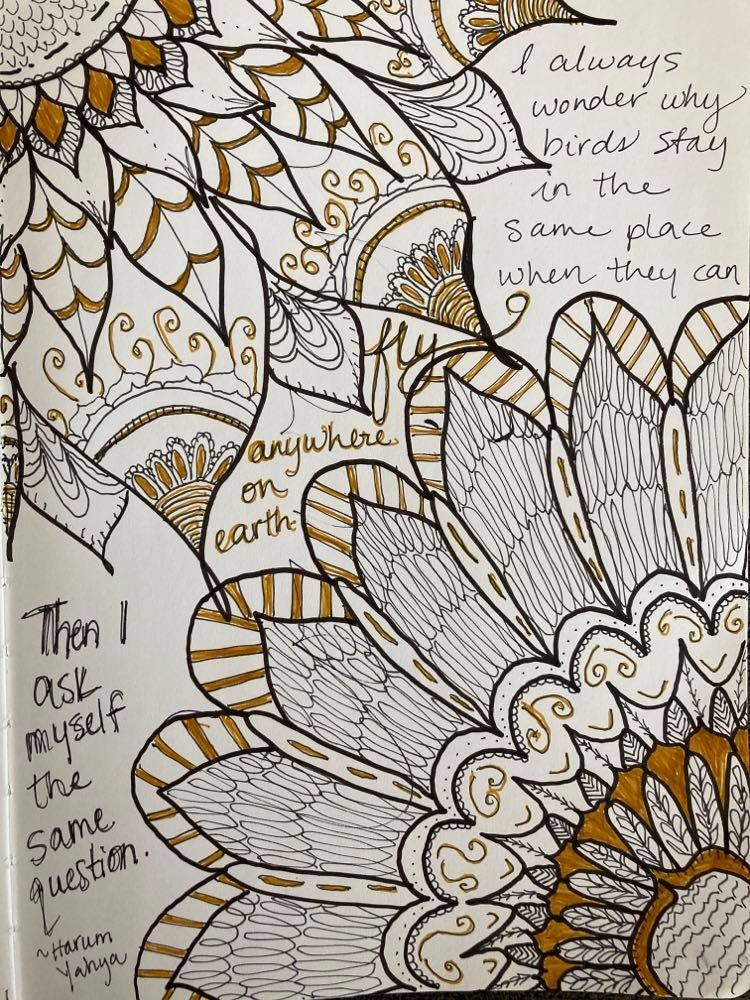 I always
wonder why
birds stay
in the
same place
when they can
fly
anywhere
on
earth.
Then I
ask
myself
the
same
question.
~Harum
Yahya